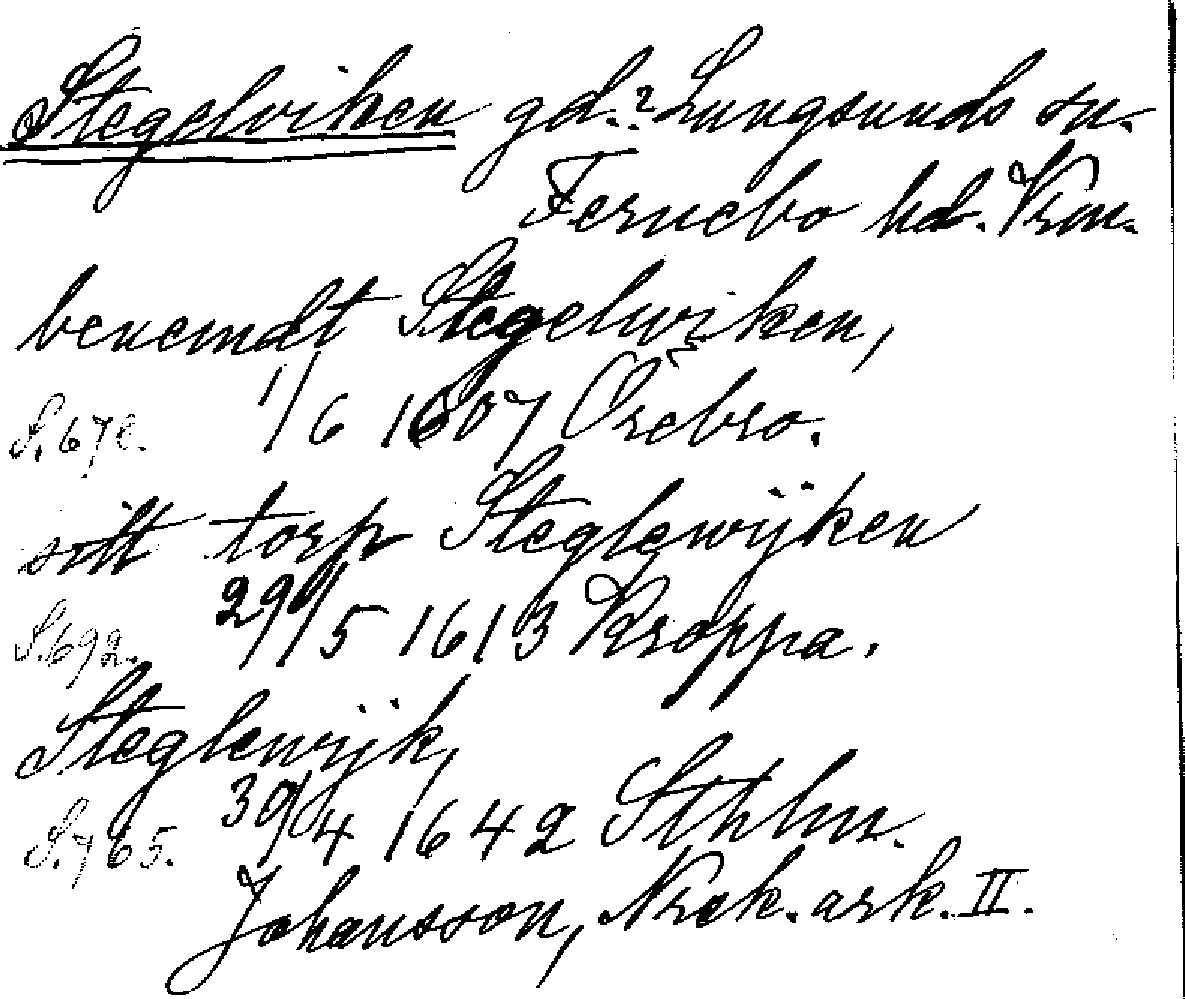 Stegelviken gd.? Lungsunds sn.
Fernebo hd. Vrm.
benemdt Stegelwiken,
S. 678. 1/6 1607 Örebro.
sitt torp Steglewijken
S. 692. 29/5 1613 Kroppa.
Steglewijk,
S. 765. 30/4 1642 Sthlm.
Johansson, Nrck. ark. II.